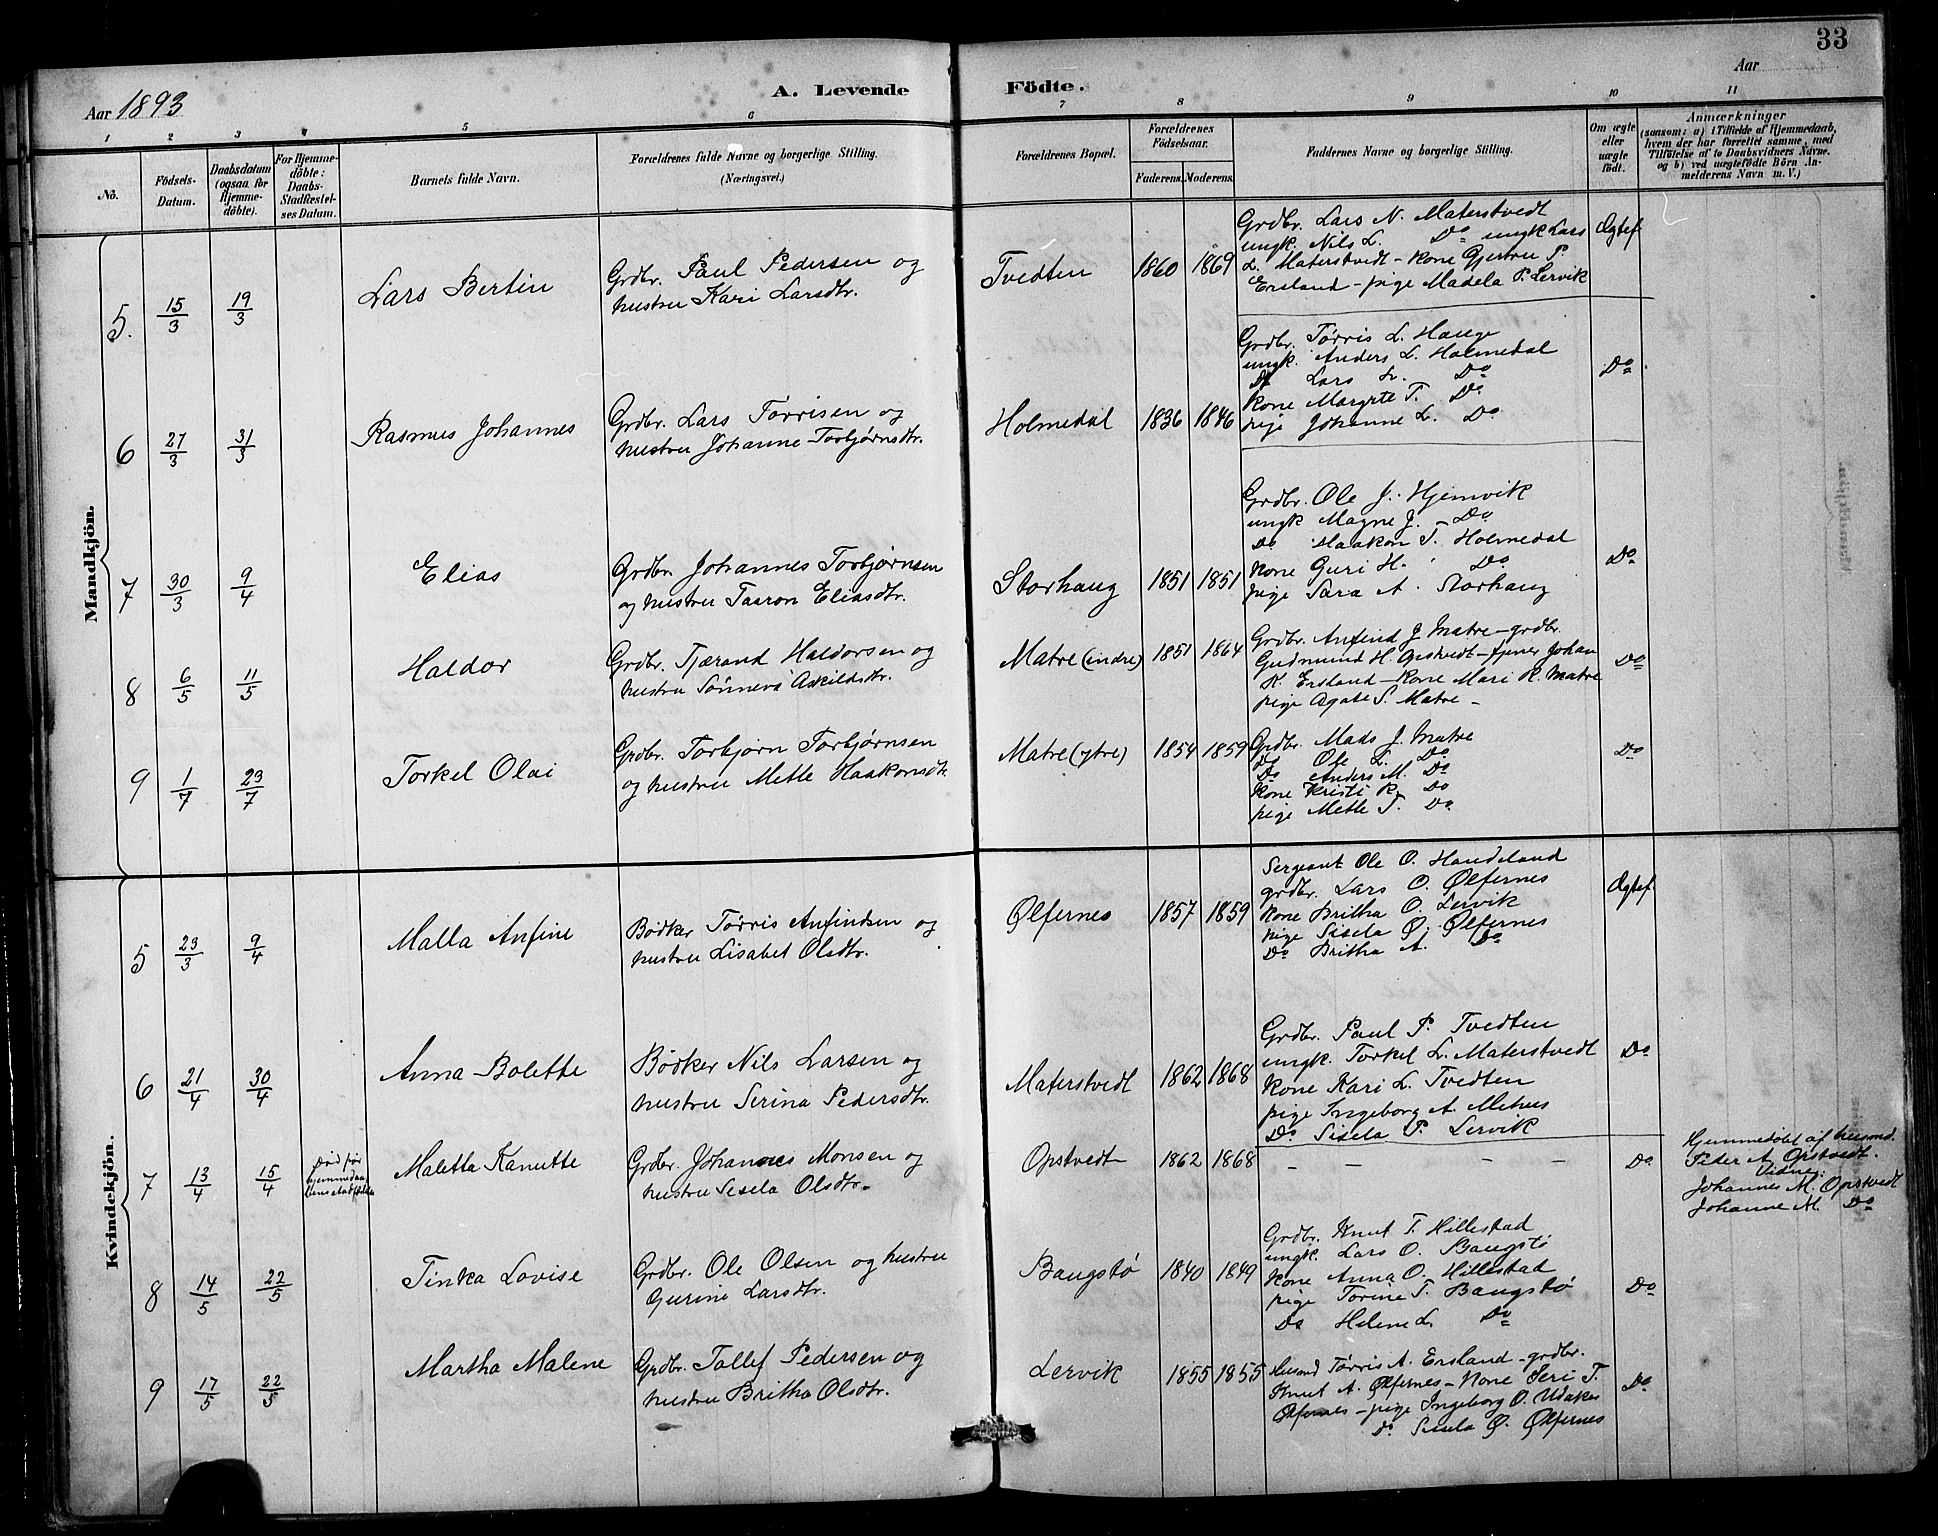 33
Aar 1893
A. Levende
Födte.
Aar
1 2 3 4 5 6 7 8 9 10 11
No.
Födsels-
Datum.
Daabsdatum
(ogsaa for
Hjemme-
döbte).
For Hjemme-
döbte:
Daabs-
Stadfæstel-
ses Datum.
Barnets fulde Navn.
Forældrenes fulde Navne og borgerlige Stilling.
(Næringsvei.)
Forældrenes Bopæl.
Forældrenes
Födselsaar.
Faderens.
Moderens.
Faddernes Navne og borgerlige Stilling.
Om ægte
eller
uægte
födt.
Anmærkninger
(saasom: a) i Tilfælde af Hjemmedaab,
hvem der har forrettet samme, med
Tilföielse af to Daabsvidners Navne.
og b) ved uægtefödte Börn An-
melderens Navn m. V.)
Mandkjön.
5. 15/3 19/3
Lars Bertin
Grdbr. Paul Pedersen og
hustru Kari Larsdtr.
Tvedten
1860 1869
Grdbr. Lars N. Materstvedt
ungk. Nils L. Do ungk Lars
L. Materstvedt - kone Gjertru P.
Ersland - pige Madela P. Lervik
Ægtef
6 27/3 31/3
Rasmus Johannes
Grdbr. Lars Tørrisen og
hustru Johanne Torbjørnsdtr.
Holmedal
1836 1846
Grdbr. Tørris L. Hauge
ungk. Anders L. Holmedal
Do Lars L. Do
kone Margrte T. Do
pige Johanne L. Do
Do
7 30/3 9/4
Elias
Grdbr. Johannes Torbjørnsen
og hustru Taaron Eliasdtr.
Storhaug
1851 1851
Grdbr. Ole J. Hjemvik
ungk Magne J. - Do
Do Haakon T. Holmedal
kone Guri H. Do
pige Sara A. Storhaug
Do
8 6/5 11/5
Haldor
Grdbr. Tjærand Haldorsen og
hustru Sønneva Askildsdtr.
Matre (indre)
1851 1864
Grdbr. Anfind J Matre - grdbr.
Gudmund H. Opstvedt - tjener Johan
K. Ersland - kone Mari R. Matre
pige Agate S. Matre -
Do
9 1/7 23/7
Torkel Olai
Grdbr. Torbjørn Torbjørnsen
og hustru Mette Haakonsdtr
Matre (ytre)
1854 1859
Grdbr. Mads J. Matre
Do Ole L. Do
Do Anders M. Do
kone Kristi R. Do
pige Mette T. Do
Do
Kvindekjön.
5 23/3 9/4
Malla Anfine
Bødker Tørris Anfindsen og
hustru Lisabet Olsdtr.
Ølfernes
1857 1859
Sergeant Ole O. Handeland
grdbr. Lars O. Ølfernes
kone Britha O. Lervik
pige Sisela O. Ølfernes
Do Britha A. Do
Ægtef
6 21/4 30/4
Anna Bolette
Bødker Nils Larsen og
hustru Serina Pedersdtr.
Materstvedt
1862 1868
Grdbr. Paul P. Tvedten
ungk. Torkel L. Materstvedt
kone Kari L. Tvedten
pige Ingeborg A. Mehus
Do Sisela P. Lervik
Do
7 13/4 15/4
Død før
hjemmedaa
bens stadfæstelse
Maletta Kanutte
Grdbr. Johannes Monsen og
hustru Sesela Olsdtr.
Opstvedt
1862 1868
- - - - -
Do
Hjemmedøbt af husmd.
Peder A. Opstvedt.
Vidner:
Johannes M. Opstvedt
Johanne M. Do
8 14/5 22/5
Tinka Lovise
Grdbr. Ole Olsen og hustru
Gurine Larsdtr.
Baugstø
1840 1849
Grdbr. Knut T. Hillestad
ungk. Lars O. Baugstø
kone Anna O. Hillestad
pige Torine T. Baugstø
Do Helene L. Do
Do
9 17/5 22/5
Martha Malene
Grdbr. Tollef Pedersen og
hustru Britha Olsdtr.
Lervik
1855 1855
Husmd Tørris A. Ersland - grdbr.
Knut A. Ølfernes - kone Seri T.
Ølfernes - pige Ingeborg O. Utaker
Do Sisela O. Ølfernes
Do